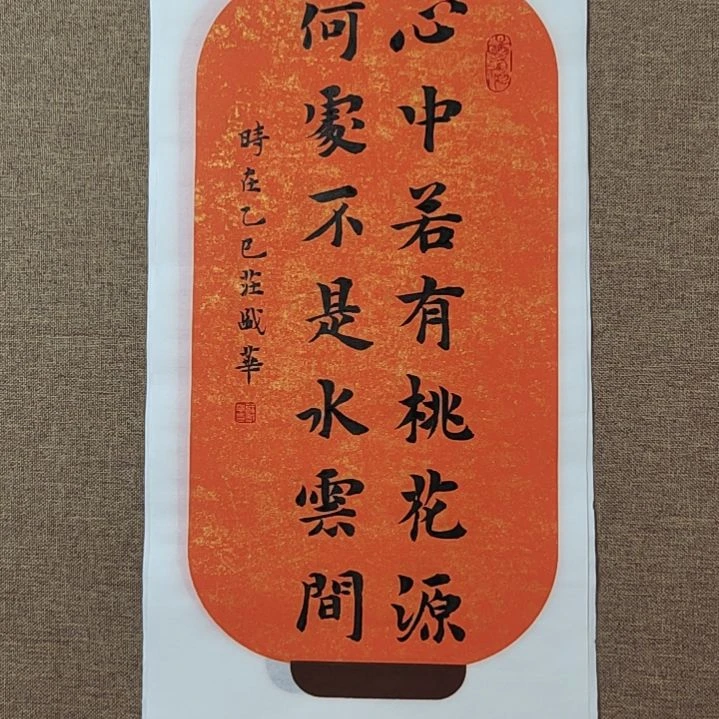 心中若有桃花源
何處不是水雲間
時在乙巳莊盛華